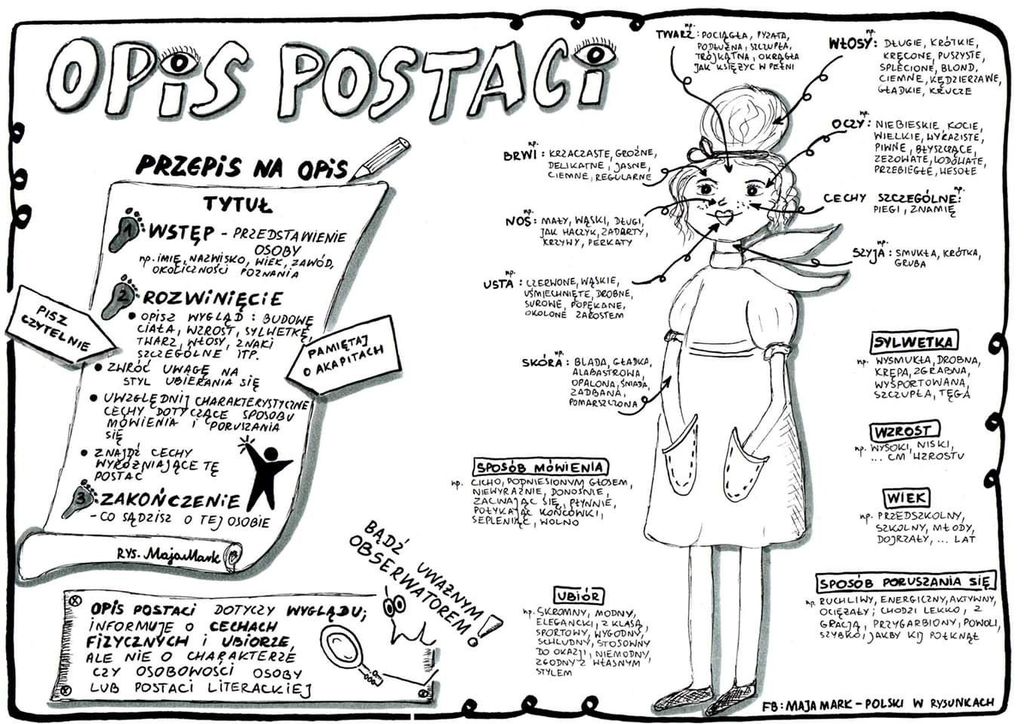 OPIS POSTACI
PRZEPIS NA OPIS
TYTUŁ
1 WSTĘP - PRZEDSTAWIENIE
OSOBY
np. IMIĘ, NAZWISKO, WIEK, ZAWÓD,
OKOLICZNOŚCI POZNANIA
2 ROZWINIĘCIE
• OPISZ WYGLĄD: BUDOWĘ
CIAŁA, WZROST, SYLWETKĘ,
TWARZ, WŁOSY, ZNAKI
SZCZEGÓLNE ITP.
• ZWRÓĆ UWAGĘ NA
STYL UBIERANIA SIĘ
• UWZGLĘDNIJ CHARAKTERYSTYCZNE
CECHY DOTYCZĄCE SPOSOBU
MÓWIENIA I PORUSZANIA
SIĘ
• ZNAJDŹ CECHY
WYRÓŻNIAJĄCE TĘ
POSTAĆ
3 ZAKOŃCZENIE
- CO SĄDZISZ O TEJ OSOBIE
RYS. MajaMark
PISZ
CZYTELNIE
PAMIĘTAJ
O AKAPITACH
BĄDŹ UWAŻNYM
OBSERWATOREM!
OPIS POSTACI DOTYCZY WYGLĄDU;
INFORMUJE O CECHACH
FIZYCZNYCH I UBIORZE,
ALE NIE O CHARAKTERZE
CZY OSOBOWOŚCI OSOBY
LUB POSTACI LITERACKIEJ
np.
TWARZ: POCIĄGŁA, PYZATA,
PODŁUŻNA, SZCZUPŁA,
TRÓJKĄTNA, OKRĄGŁA
JAK KSIĘŻYC W PEŁNI
np.
WŁOSY: DŁUGIE, KRÓTKIE,
KRĘCONE, PUSZYSTE,
SPLECIONE, BLOND,
CIEMNE, KĘDZIERZAWE,
GŁADKIE, KRUCZE
np.
OCZY: NIEBIESKIE, KOCIE,
WIELKIE, WYRAZISTE,
PIWNE, BŁYSZCZĄCE,
ZEZOWATE, LODOWATE,
PRZEBIEGŁE, WESOŁE
np.
BRWI: KRZACZASTE, GROŹNE,
DELIKATNE, JASNE,
CIEMNE, REGULARNE
np.
CECHY SZCZEGÓLNE:
PIEGI, ZNAMIĘ
np.
NOS: MAŁY, WĄSKI, DŁUGI,
JAK HACZYK, ZADARTY,
KRZYWY, PERKATY
np.
SZYJA: SMUKŁA, KRÓTKA,
GRUBA
np.
USTA: CZERWONE, WĄSKIE,
UŚMIECHNIĘTE, DROBNE,
SUROWE, POPĘKANE,
OKOLONE ZAROSTEM
np.
SKÓRA: BLADA, GŁADKA,
ALABASTROWA,
OPALONA, ŚNIADA,
ZADBANA,
POMARSZCZONA
SYLWETKA
np. WYSMUKŁA, DROBNA,
KRĘPA, ZGRABNA,
WYSPORTOWANA,
SZCZUPŁA, TĘGA
WZROST
np. WYSOKI, NISKI,
... CM WZROSTU
SPOSÓB MÓWIENIA
np. CICHO, PODNIESIONYM GŁOSEM,
NIEWYRAŹNIE, DONOŚNIE,
ZACINAJĄC SIĘ, PŁYNNIE,
POŁYKAJĄC KOŃCÓWKI,
SEPLENIĄC, WOLNO
WIEK
np. PRZEDSZKOLNY,
SZKOLNY, MŁODY,
DOJRZAŁY, ... LAT
UBIÓR
np. SKROMNY, MODNY,
ELEGANCKI, Z KLASĄ,
SPORTOWY, WYGODNY,
SCHLUDNY, STOSOWNY
DO OKAZJI, NIEMODNY,
ZGODNY Z WŁASNYM
STYLEM
SPOSÓB PORUSZANIA SIĘ
np. RUCHLIWY, ENERGICZNY, AKTYWNY,
OCIĘŻAŁY; CHODZI LEKKO, Z
GRACJĄ, PRZYGARBIONY, POWOLI,
SZYBKO, JAKBY KIJ POŁKNĄŁ
FB: MAJA MARK - POLSKI W RYSUNKACH